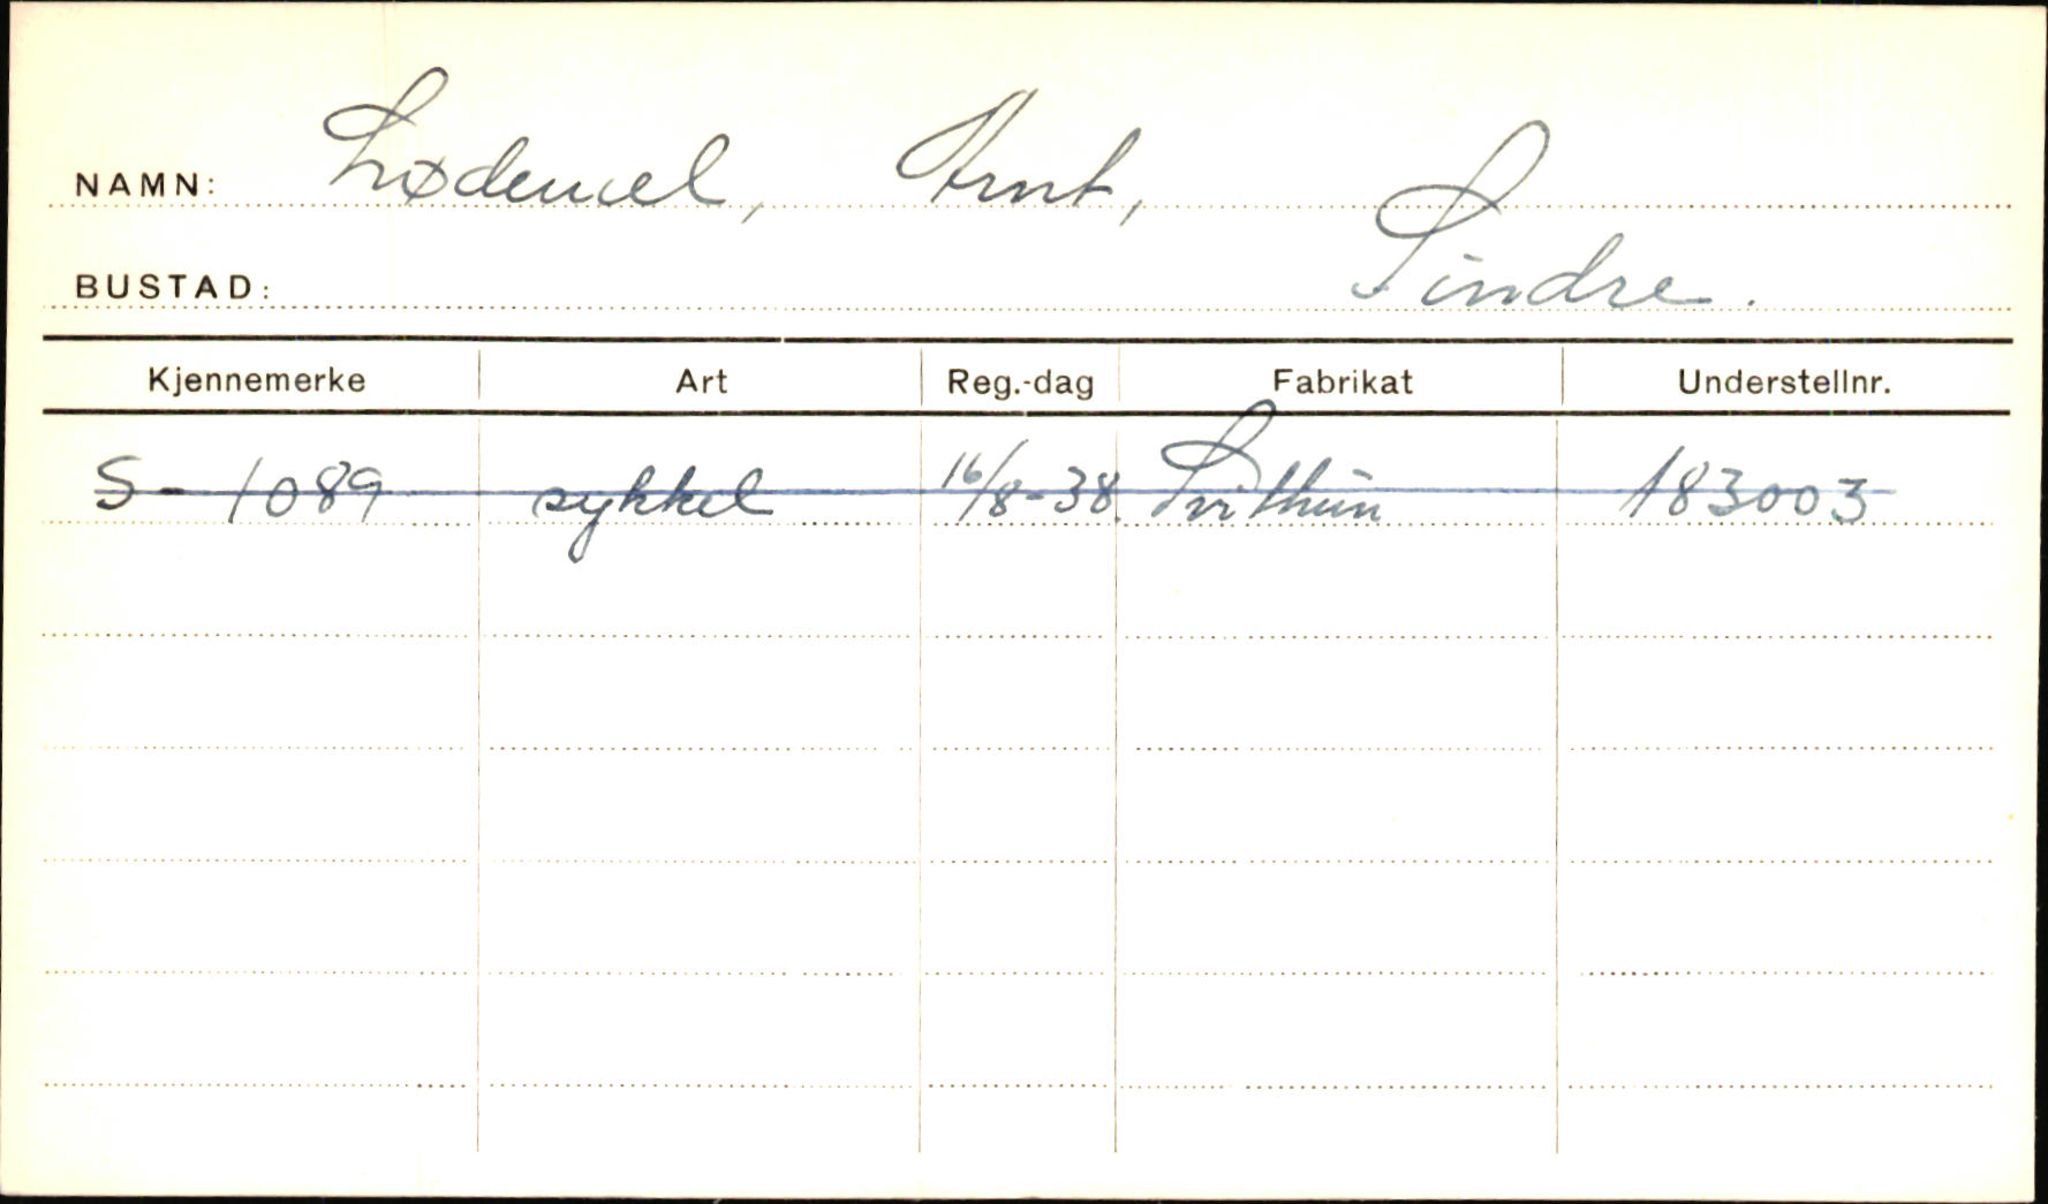 NAMN: Lødemel, Arnt,
BUSTAD: Sindre.
Kjennemerke Art Reg.-dag Fabrikat Understellnr.
S- 1089 sykkel 16/8-38. Svithun 183003